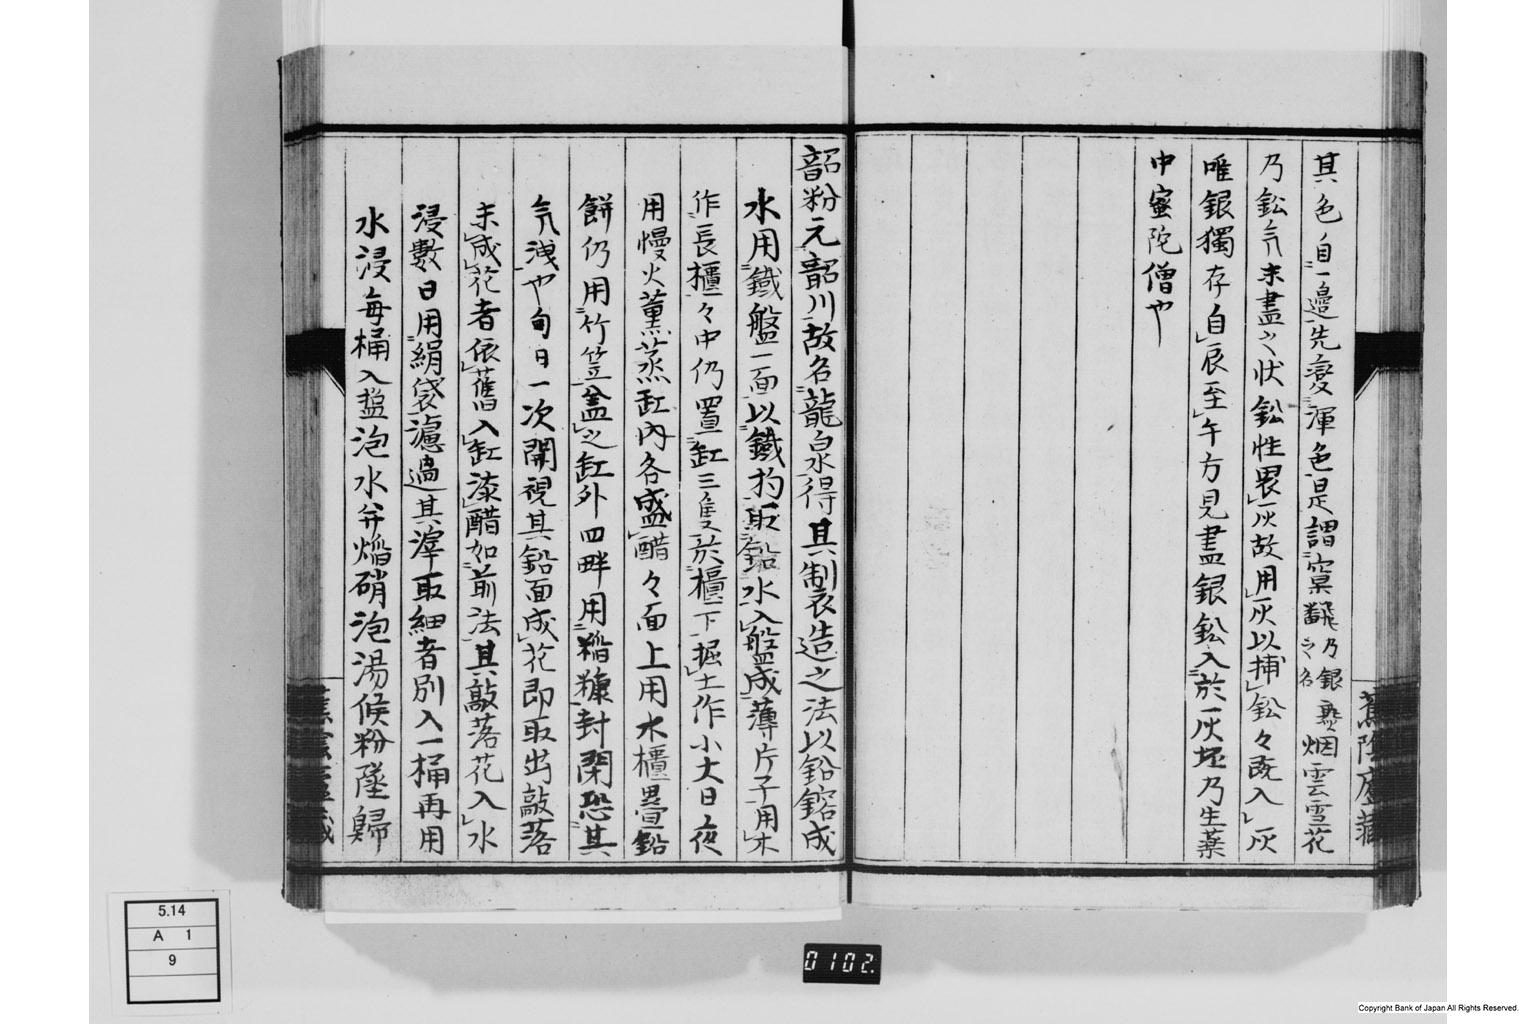 其色自一邊先變渾色是謂窠翻乃銀熟烟雲雪花
之名
乃鈆气未盡之状鈆性畏灰故用灰以捕鈆々既入灰
唯銀獨存自辰至午方見盡銀鈆入於灰坯乃生薬
中蜜陀僧也
韶粉元韶川故名龍泉得其制造之法以鉛鎔成
水用鐵盤一面以鐵杓取鉛水入盤成薄片子用木
作長櫃々中仍置缸三隻於櫃下掘土作小大日夜
用慢火薫蒸缸内各盛醋々面上用木櫃畳鉛
餅仍用竹笠盖之缸外四畔用稲糠封閉恐其
气洩也旬日一次開視其鉛面成花即取出敲落
未成花者依舊入缸漆醋如前法其敲落花入水
浸數日用絹袋濾過其滓取細者別入一桶再用
水浸毎桶入塩泡水弁焔硝泡湯候粉墜歸
5.14
A 1
9
0102.
Copyright Bank of Japan All Rights Reserved.